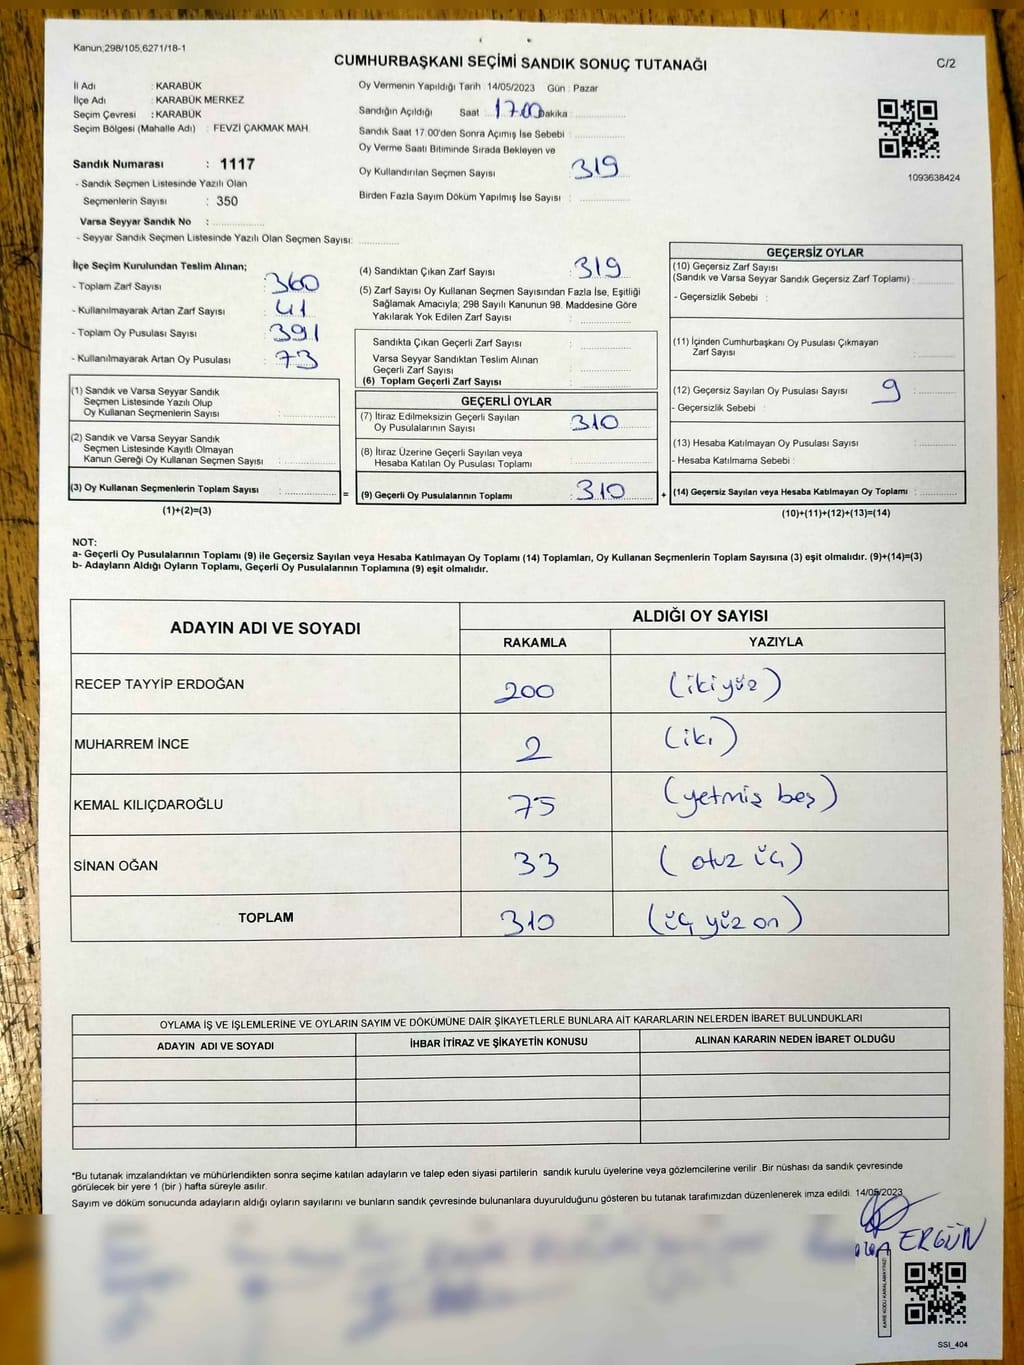 Kanun,298/105,6271/18-1
CUMHURBAŞKANI SEÇİMİ SANDIK SONUÇ TUTANAĞI
C/2
İl Adı : KARABÜK
İlçe Adı : KARABÜK MERKEZ
Seçim Çevresi : KARABÜK
Seçim Bölgesi (Mahalle Adı) : FEVZİ ÇAKMAK MAH.
Sandık Numarası : 1117
- Sandık Seçmen Listesinde Yazılı Olan
Seçmenlerin Sayısı : 350
Varsa Seyyar Sandık No :
- Seyyar Sandık Seçmen Listesinde Yazılı Olan Seçmen Sayısı:
Oy Vermenin Yapıldığı Tarih : 14/05/2023 Gün : Pazar
Sandığın Açıldığı Saat : 17.00 Dakika :
Sandık Saat 17.00'den Sonra Açımış İse Sebebi :
Oy Verme Saati Bitiminde Sırada Bekleyen ve
Oy Kullandırılan Seçmen Sayısı : 319
Birden Fazla Sayım Döküm Yapılmış İse Sayısı :
1093638424
İlçe Seçim Kurulundan Teslim Alınan;
- Toplam Zarf Sayısı : 360
- Kullanılmayarak Artan Zarf Sayısı : 41
- Toplam Oy Pusulası Sayısı : 391
- Kullanılmayarak Artan Oy Pusulası : 73
(1) Sandık ve Varsa Seyyar Sandık
Seçmen Listesinde Yazılı Olup
Oy Kullanan Seçmenlerin Sayısı :
(2) Sandık ve Varsa Seyyar Sandık
Seçmen Listesinde Kayıtlı Olmayan
Kanun Gereği Oy Kullanan Seçmen Sayısı :
(3) Oy Kullanan Seçmenlerin Toplam Sayısı :
(1)+(2)=(3)
=
(4) Sandıktan Çıkan Zarf Sayısı : 319
(5) Zarf Sayısı Oy Kullanan Seçmen Sayısından Fazla İse, Eşitliği
Sağlamak Amacıyla; 298 Sayılı Kanunun 98. Maddesine Göre
Yakılarak Yok Edilen Zarf Sayısı :
Sandıkta Çıkan Geçerli Zarf Sayısı :
Varsa Seyyar Sandıktan Teslim Alınan
Geçerli Zarf Sayısı :
(6) Toplam Geçerli Zarf Sayısı :
GEÇERLİ OYLAR
(7) İtiraz Edilmeksizin Geçerli Sayılan
Oy Pusulalarının Sayısı : 310
(8) İtiraz Üzerine Geçerli Sayılan veya
Hesaba Katılan Oy Pusulası Toplamı :
(9) Geçerli Oy Pusulalarının Toplamı : 310
+
GEÇERSİZ OYLAR
(10) Geçersiz Zarf Sayısı
(Sandık ve Varsa Seyyar Sandık Geçersiz Zarf Toplamı) :
- Geçersizlik Sebebi :
(11) İçinden Cumhurbaşkanı Oy Pusulası Çıkmayan
Zarf Sayısı :
(12) Geçersiz Sayılan Oy Pusulası Sayısı : 9
- Geçersizlik Sebebi :
(13) Hesaba Katılmayan Oy Pusulası Sayısı :
- Hesaba Katılmama Sebebi :
(14) Geçersiz Sayılan veya Hesaba Katılmayan Oy Toplamı :
(10)+(11)+(12)+(13)=(14)
NOT:
a- Geçerli Oy Pusulalarının Toplamı (9) ile Geçersiz Sayılan veya Hesaba Katılmayan Oy Toplamı (14) Toplamları, Oy Kullanan Seçmenlerin Toplam Sayısına (3) eşit olmalıdır. (9)+(14)=(3)
b- Adayların Aldığı Oyların Toplamı, Geçerli Oy Pusulalarının Toplamına (9) eşit olmalıdır.
ADAYIN ADI VE SOYADI
ALDIĞI OY SAYISI
RAKAMLA YAZIYLA
RECEP TAYYİP ERDOĞAN 200 (ikiyüz)
MUHARREM İNCE 2 (iki)
KEMAL KILIÇDAROĞLU 75 (yetmiş beş)
SİNAN OĞAN 33 (otuz üç)
TOPLAM 310 (üç yüz on)
OYLAMA İŞ VE İŞLEMLERİNE VE OYLARIN SAYIM VE DÖKÜMÜNE DAİR ŞİKAYETLERLE BUNLARA AİT KARARLARIN NELERDEN İBARET BULUNDUKLARI
ADAYIN ADI VE SOYADI İHBAR İTİRAZ VE ŞİKAYETİN KONUSU ALINAN KARARIN NEDEN İBARET OLDUĞU
*Bu tutanak imzalandıktan ve mühürlendikten sonra seçime katılan adayların ve talep eden siyasi partilerin sandık kurulu üyelerine veya gözlemcilerine verilir. Bir nüshası da sandık çevresinde
görülecek bir yere 1 (bir ) hafta süreyle asılır.
Sayım ve döküm sonucunda adayların aldığı oyların sayılarını ve bunların sandık çevresinde bulunanlara duyurulduğunu gösteren bu tutanak tarafımızdan düzenlenerek imza edildi. 14/05/2023
ERGÜN
KARE KODU KARALAMAYINIZ!
SSI_404